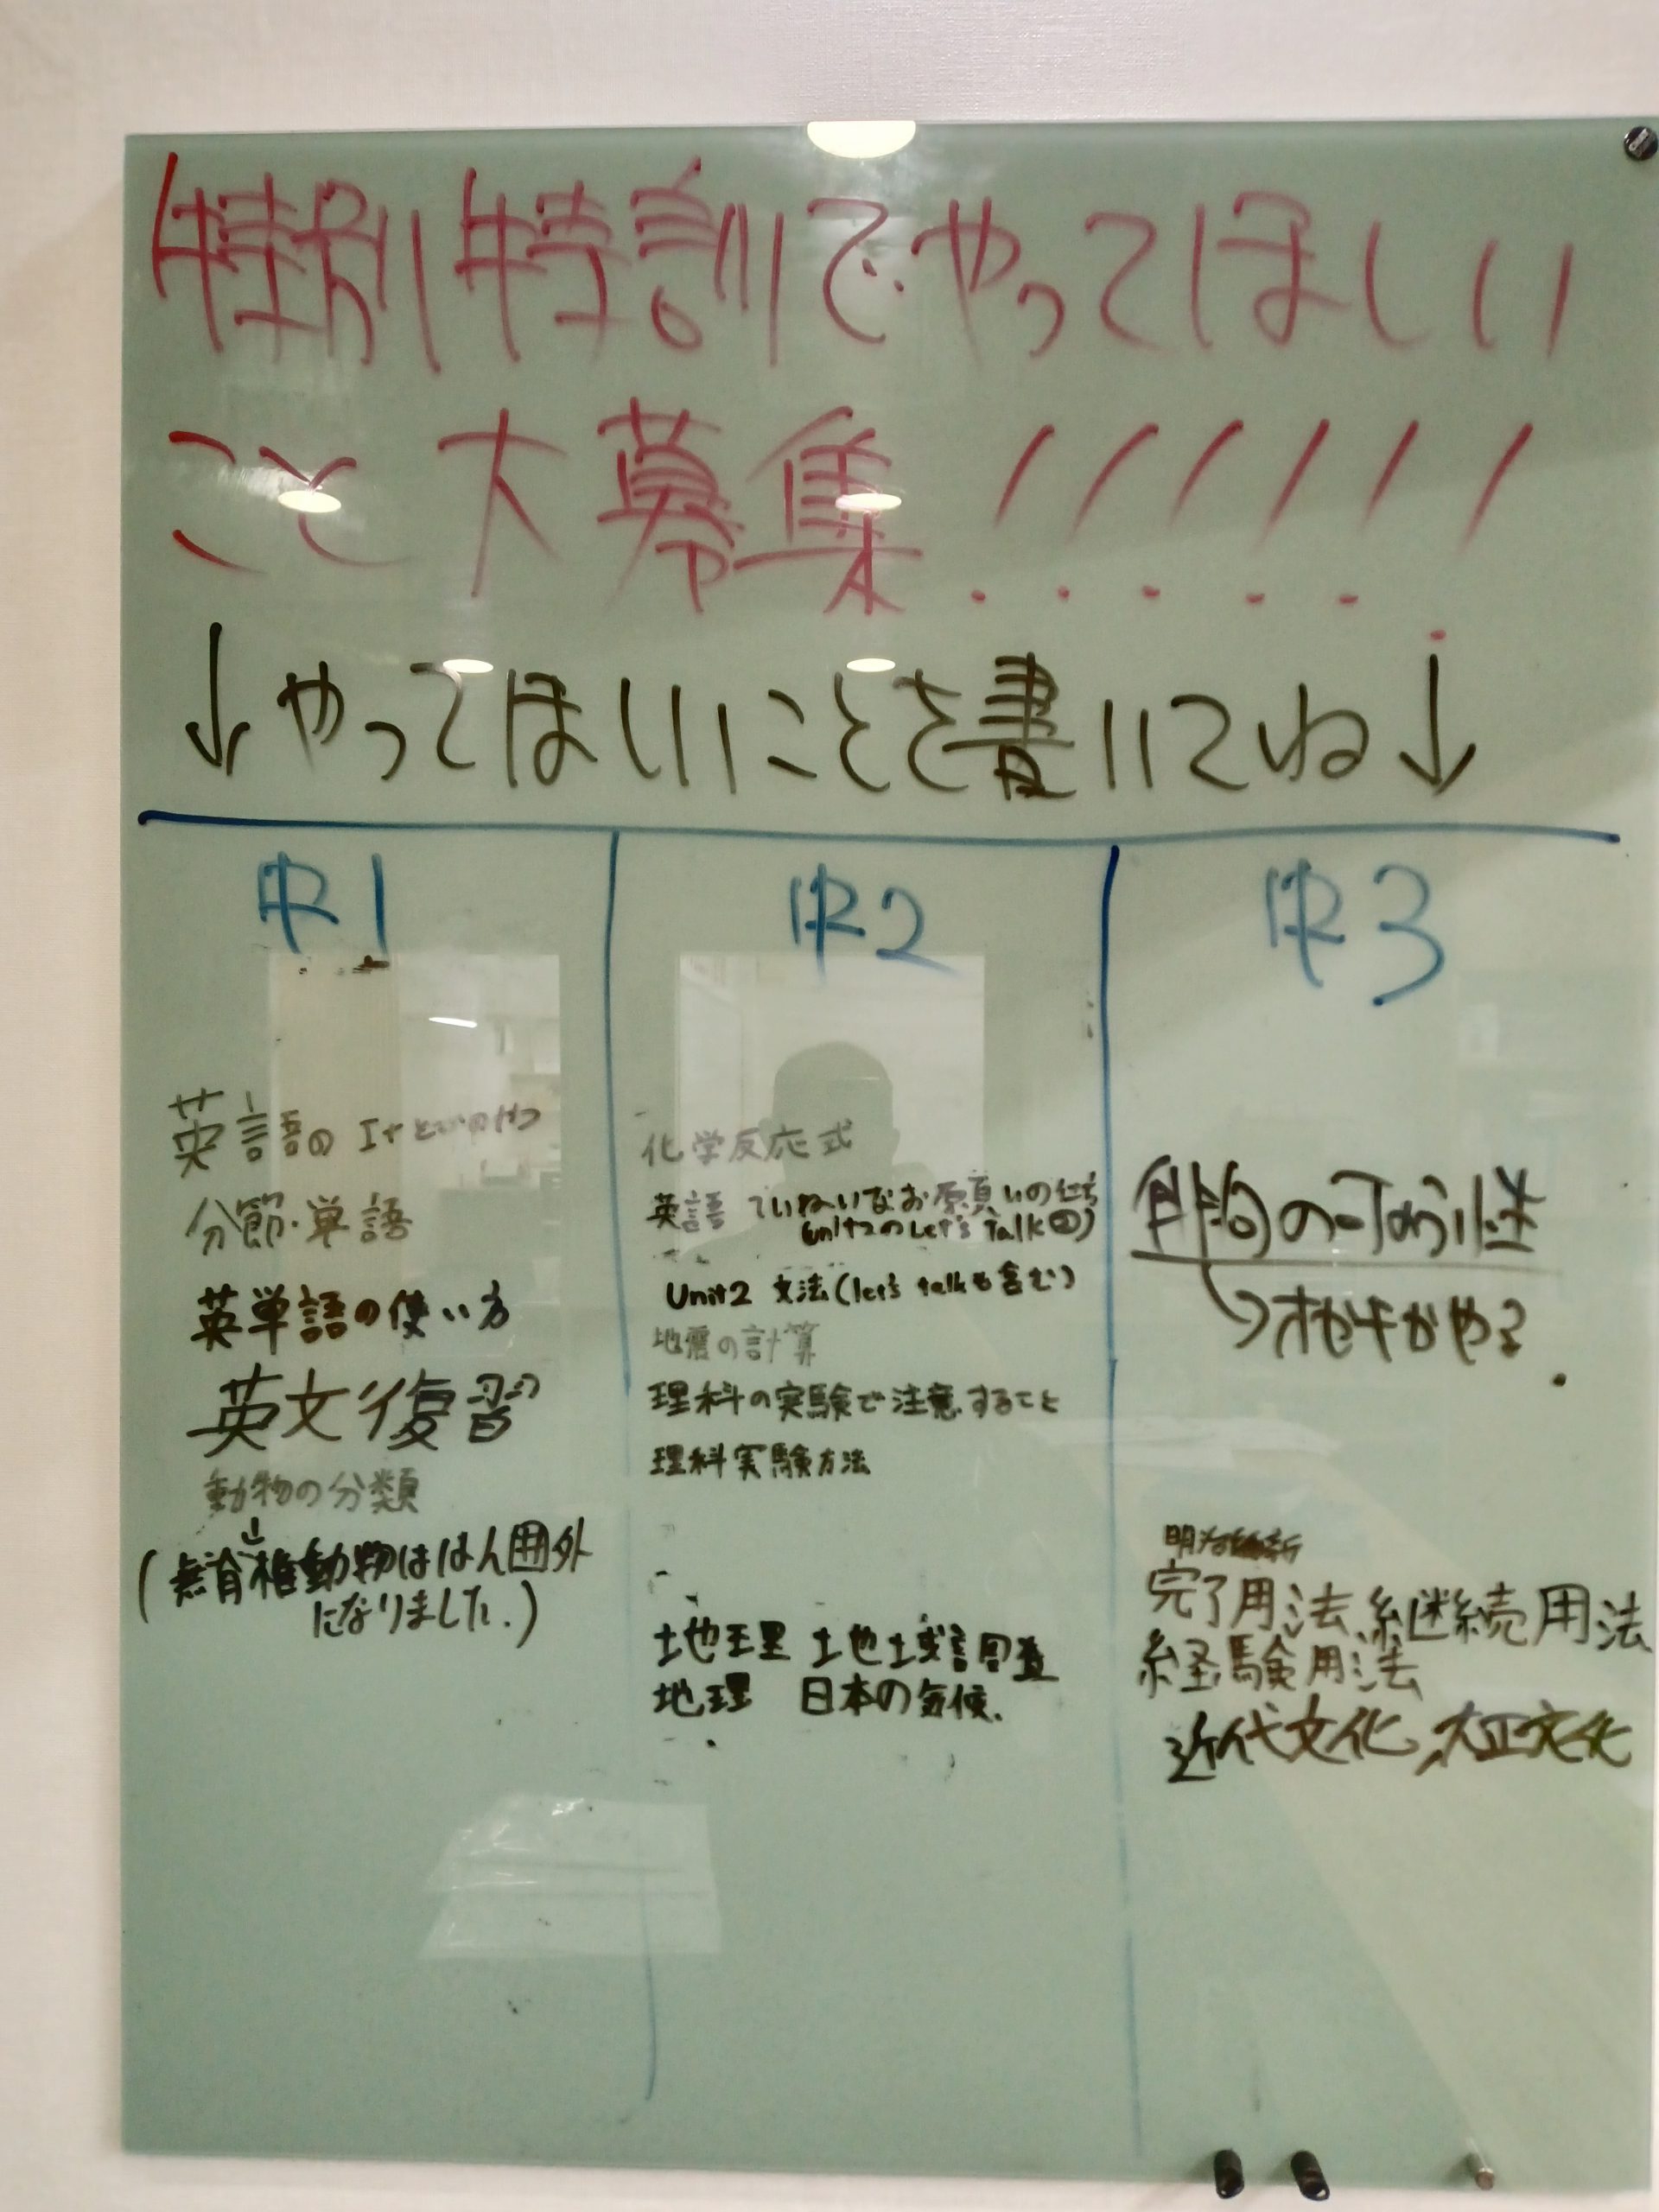 特別特訓でやってほしい
こと大募集!!!!!!
↓やってほしいことを書いてね↓
中1
英語の
分節・単語
英単語の使い方
英文復習
動物の分類
(無脊椎動物ははん囲外
になりました.)
中2
化学反応式
英語 ていねいなお願いの仕方
(unit2のLet's Talk②)
Unit2 文法(let's talkも含む)
地震の計算
理科の実験で注意すること
理科実験方法
地理 地域調査
地理 日本の気候.
中3
の可のう性
明治維新
完了用法、継続用法
経験用法
近代文化,大正文化